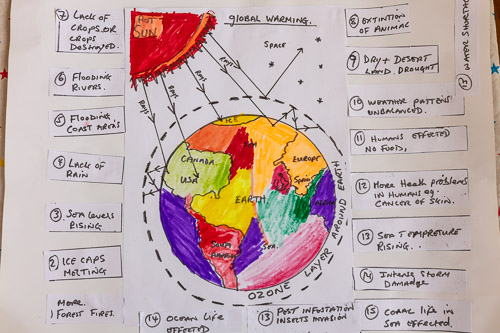 GLOBAL WARMING.
HOT
SUN
SPACE
RAYS
RAYS
RAYS
RAYS
ICE
CANADA
USA
EUROPE
SPAIN
EARTH
SOUTH
SEA.
OZONE LAYER AROUND EARTH
7 LACK OF
CROPS OR
CROPS
DESTROYED.
6 FLOODING
RIVERS.
5 FLOODING
COAST AREA'S
4 LACK OF
RAIN
3 SEA LEVELS
RISING
2 ICE CAPS
MELTING
MORE
1 FOREST FIRES.
8 EXTINTION
OF ANIMAL
9 DRY + DESERT
LAND. DROUGHT
10 WEATHER PATTENS
UNBALANCED.
11 HUMANS EFFECTED
NO FOOD,
12 MORE HEALTH PROBLEMS
IN HUMANS eg.
CANCER OF SKIN.
13 SEA TEMPRETURE
RISING.
14 INTENSE STORM
DAMADGE
15 CORAL LIFE IN
SEA EFFECTED
14 OCEAN LIFE
EFFECTED
13 PEST INFOSTATION
INSECTS INVASION
17 WATER